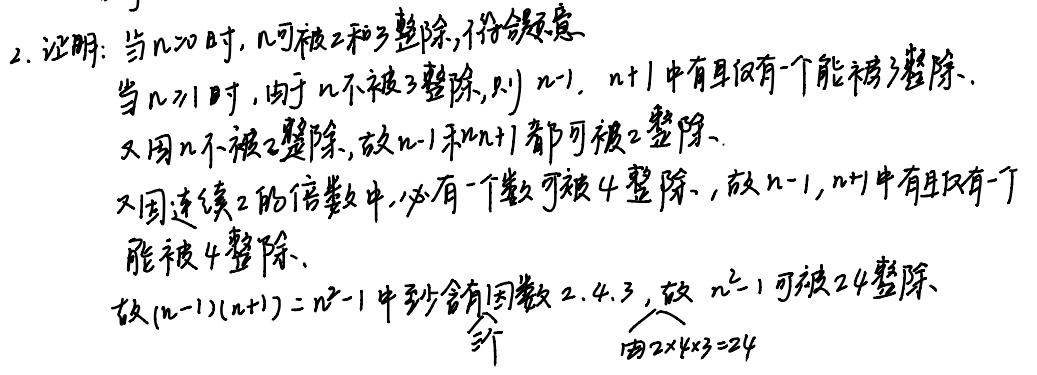 2. 证明: 当n=0时, n可被2和3整除, 不符合题意
当n≥1时, 由于n不被3整除, 则 n-1, n+1中有且仅有一个能被3整除.
又因n不被2整除, 故n-1和n+1都可被2整除.
又因连续2的倍数中, 必有一个数可被4整除, 故n-1, n+1中有且仅有一个
能被4整除.
故(n-1)(n+1)=n²-1中至少含有因数2.4.3, 故 n²-1可被24整除
三个
由2×4×3=24